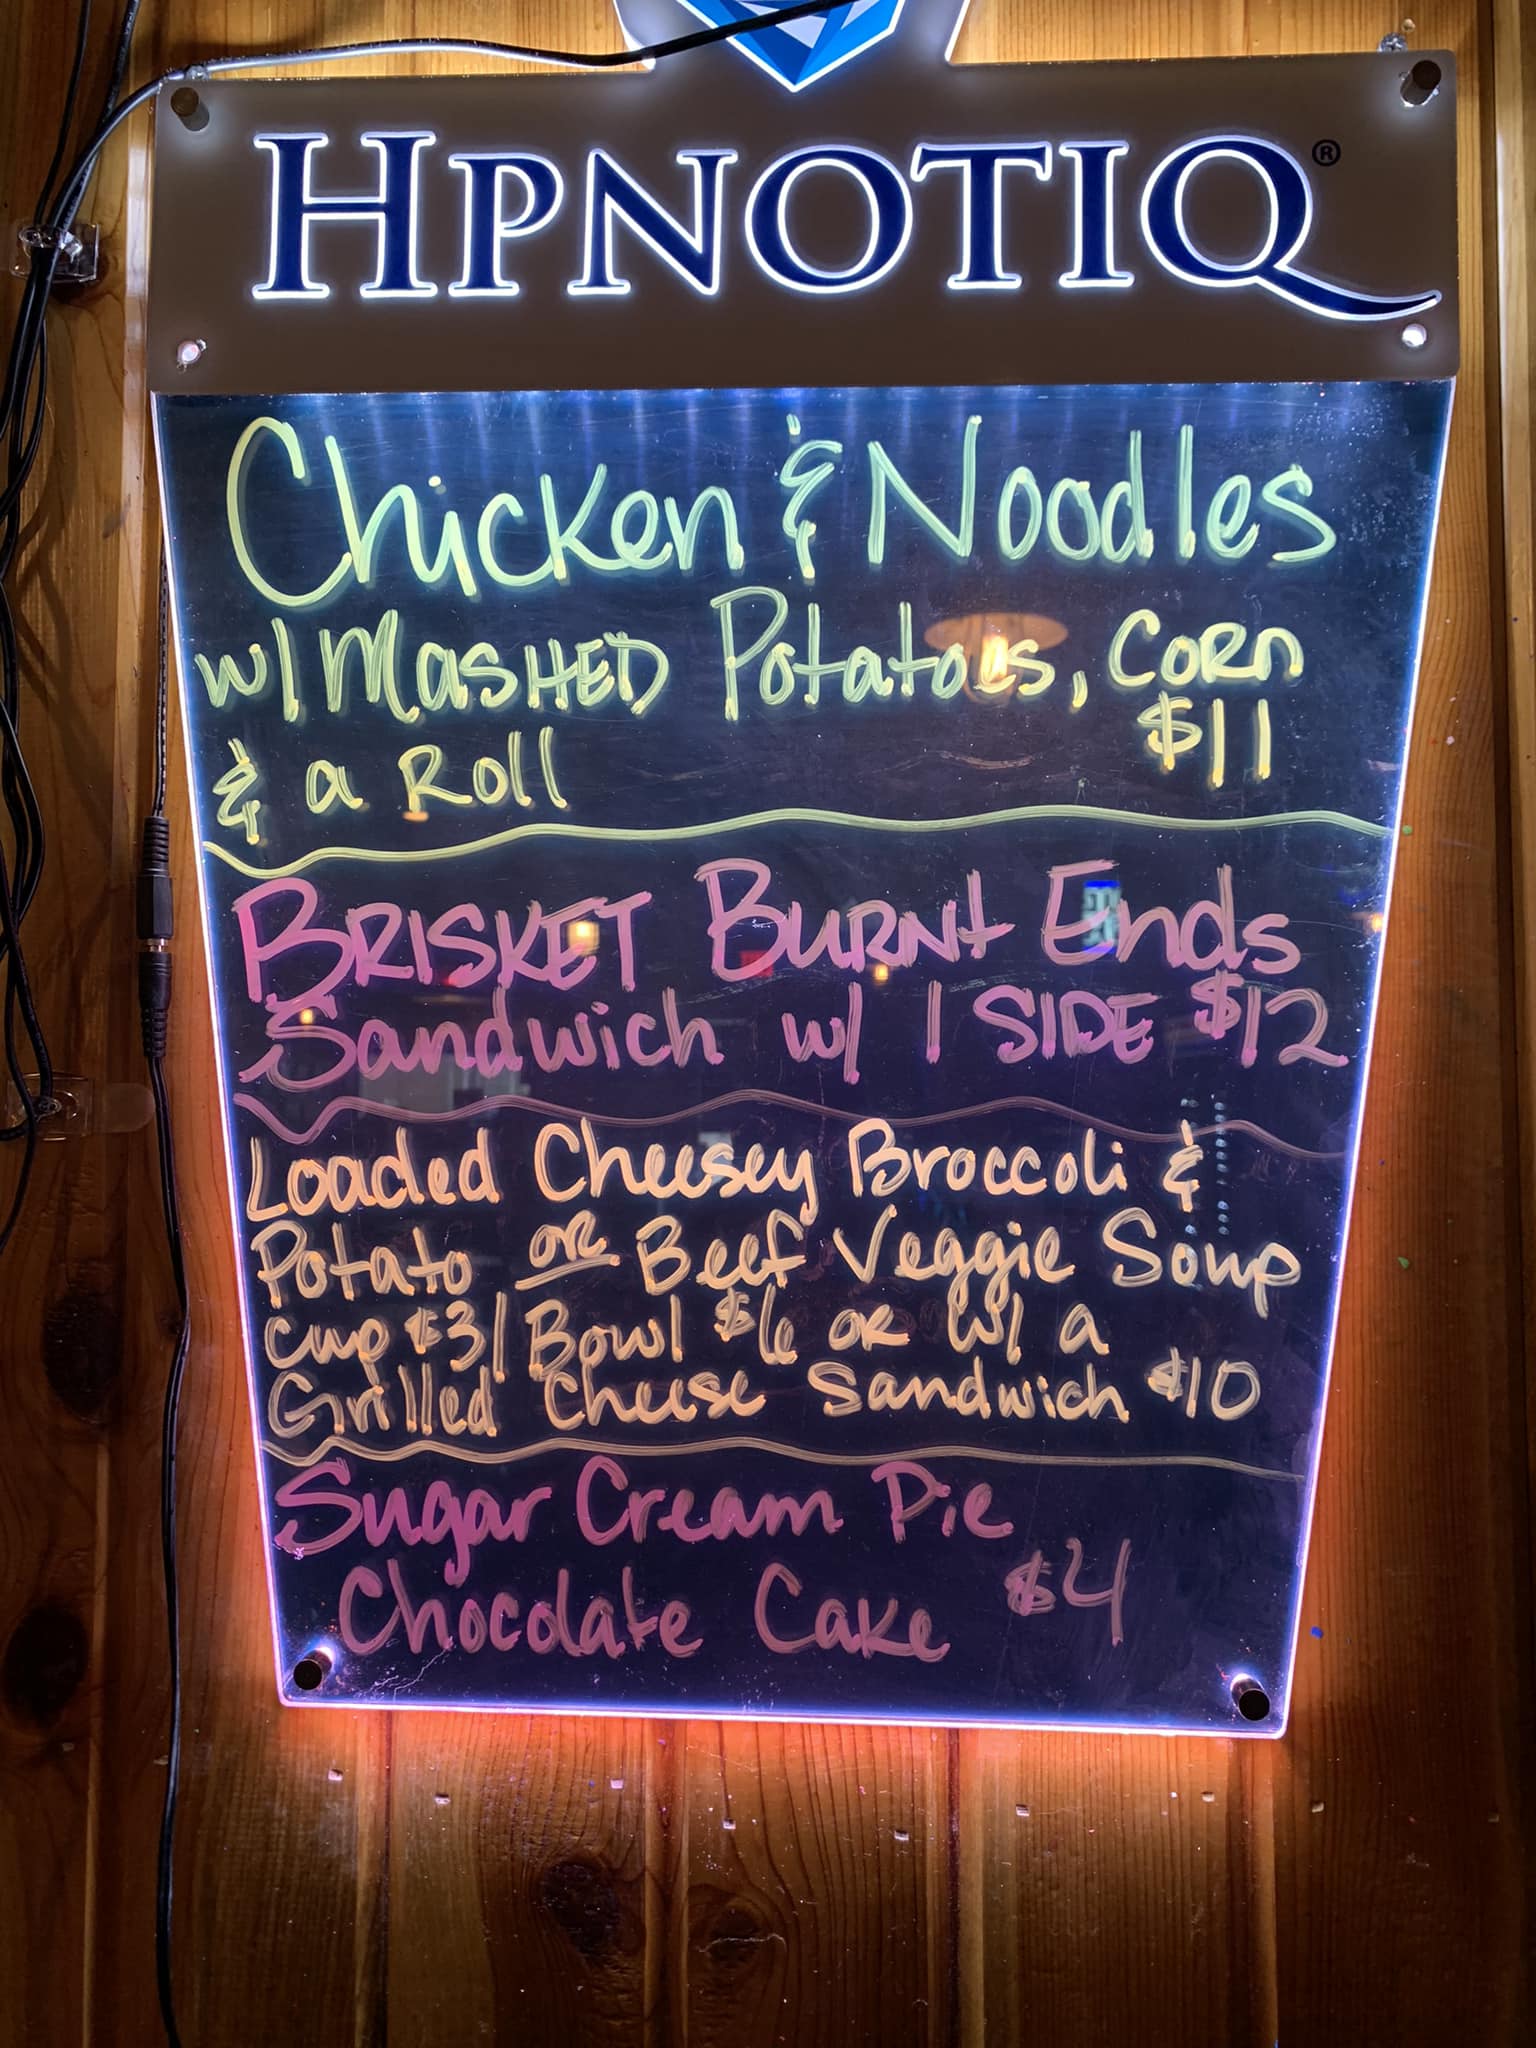 HPNOTIQ®
Chicken & Noodles
w/ Mashed Potatoes, Corn
$11
& a Roll
Brisket Burnt Ends
Sandwich w/ 1 Side $12
Loaded Cheesey Broccoli &
Potato or Beef Veggie Soup
Cup $3/Bowl $6 or w/ a
Grilled Cheese Sandwich $10
Sugar Cream Pie
Chocolate Cake $4